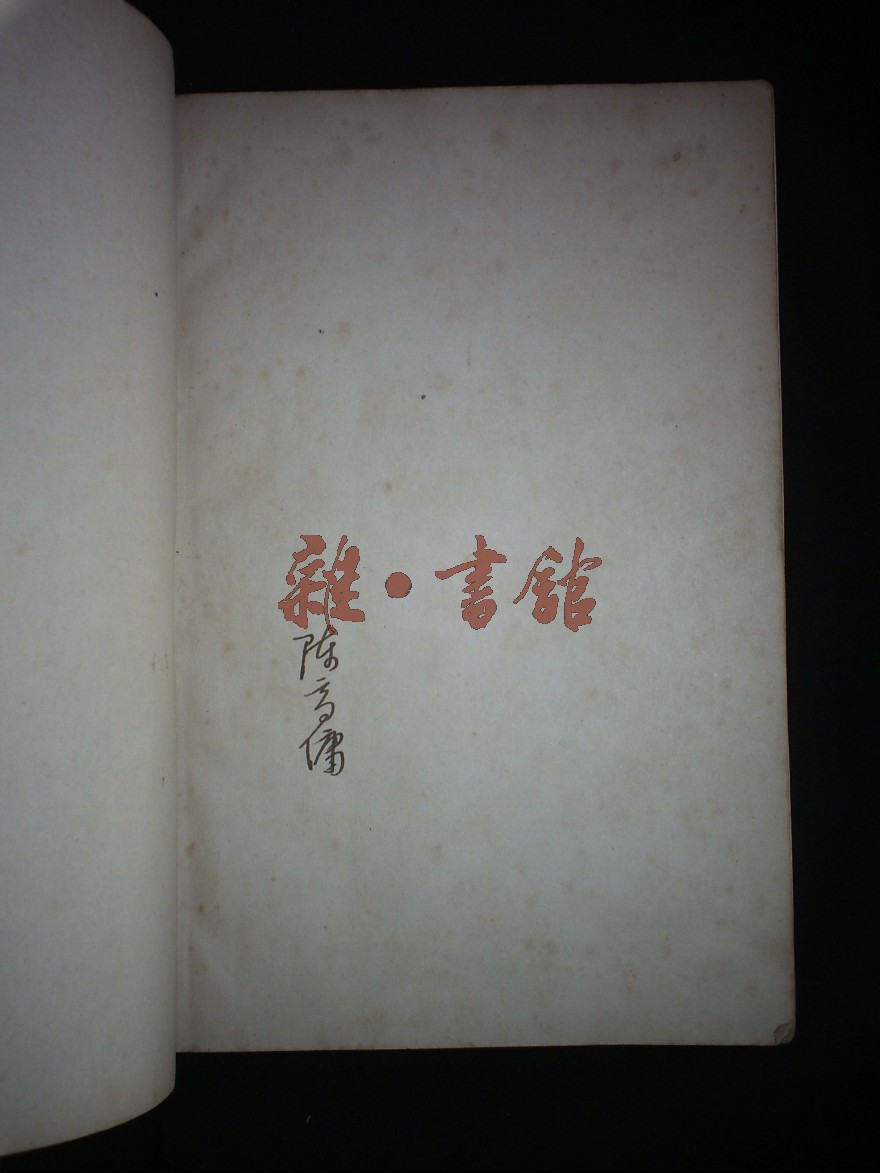 雜·書館
陈高傭